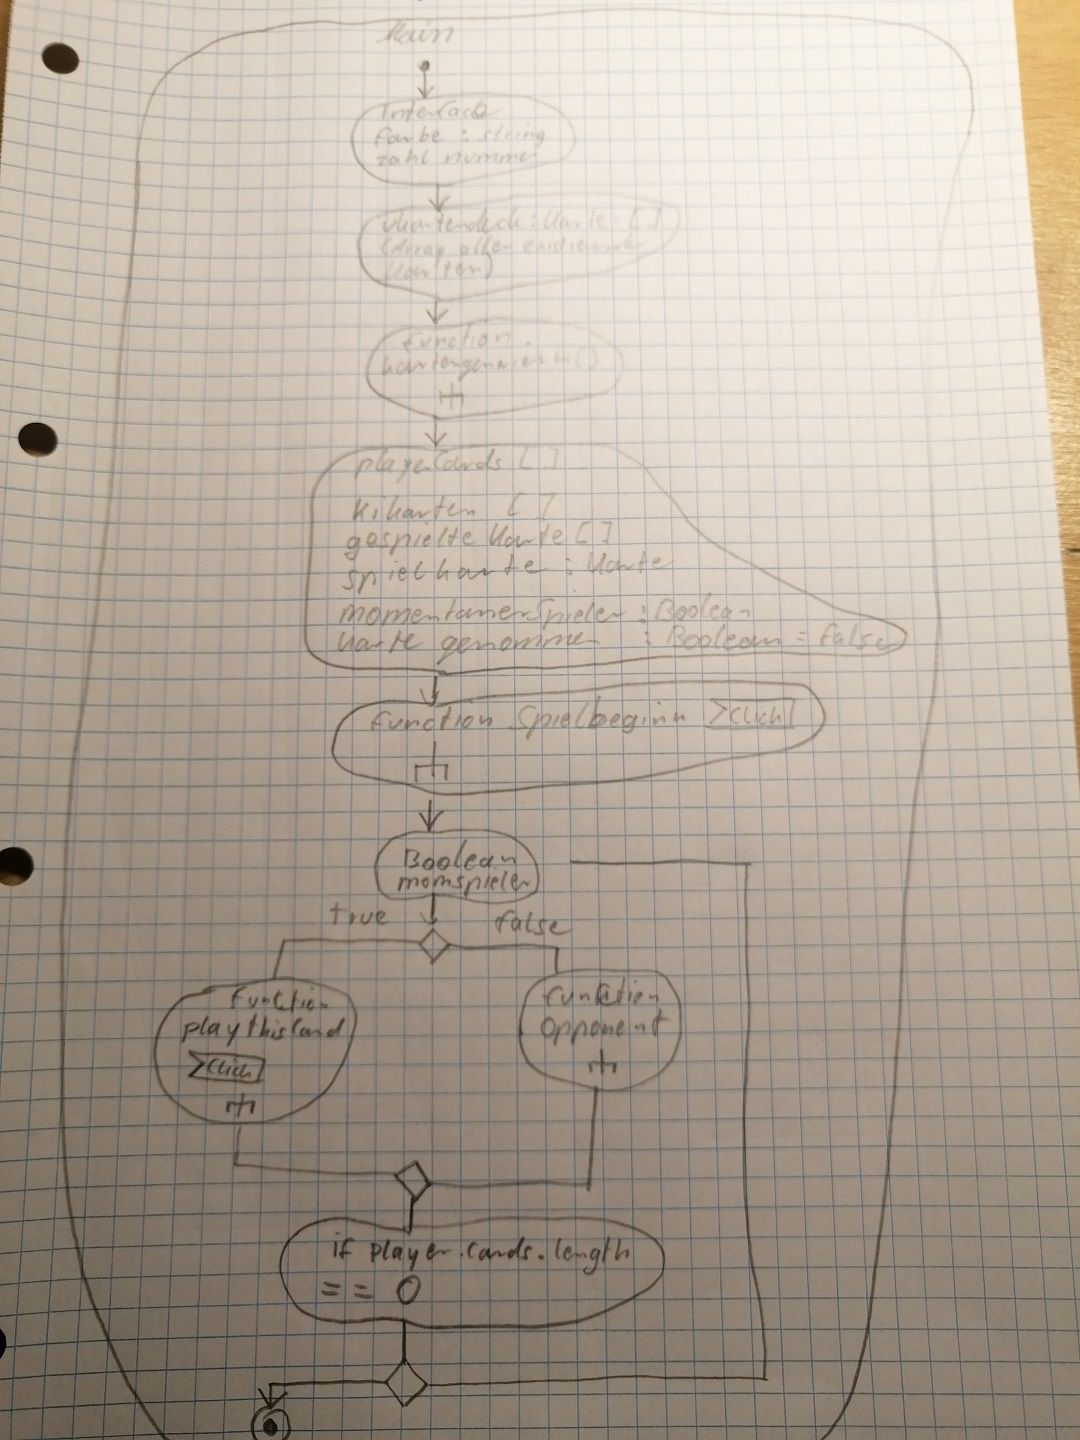 Main
Interface
farbe : string
zahl nummer
kartendeck : Karte [ ]
(Array aller existierender
Karten)
function
kartengenerieren()
playerCards [ ]
Kikarten [ ]
gespielte Karte [ ]
spielkarte : Karte
momentanerSpieler : Boolean
karte genommen : Boolean = false
function Spielbeginn click
Boolean
momspieler
true false
function
playthisCard
click
function
Opponent
if player.cards.length
== 0